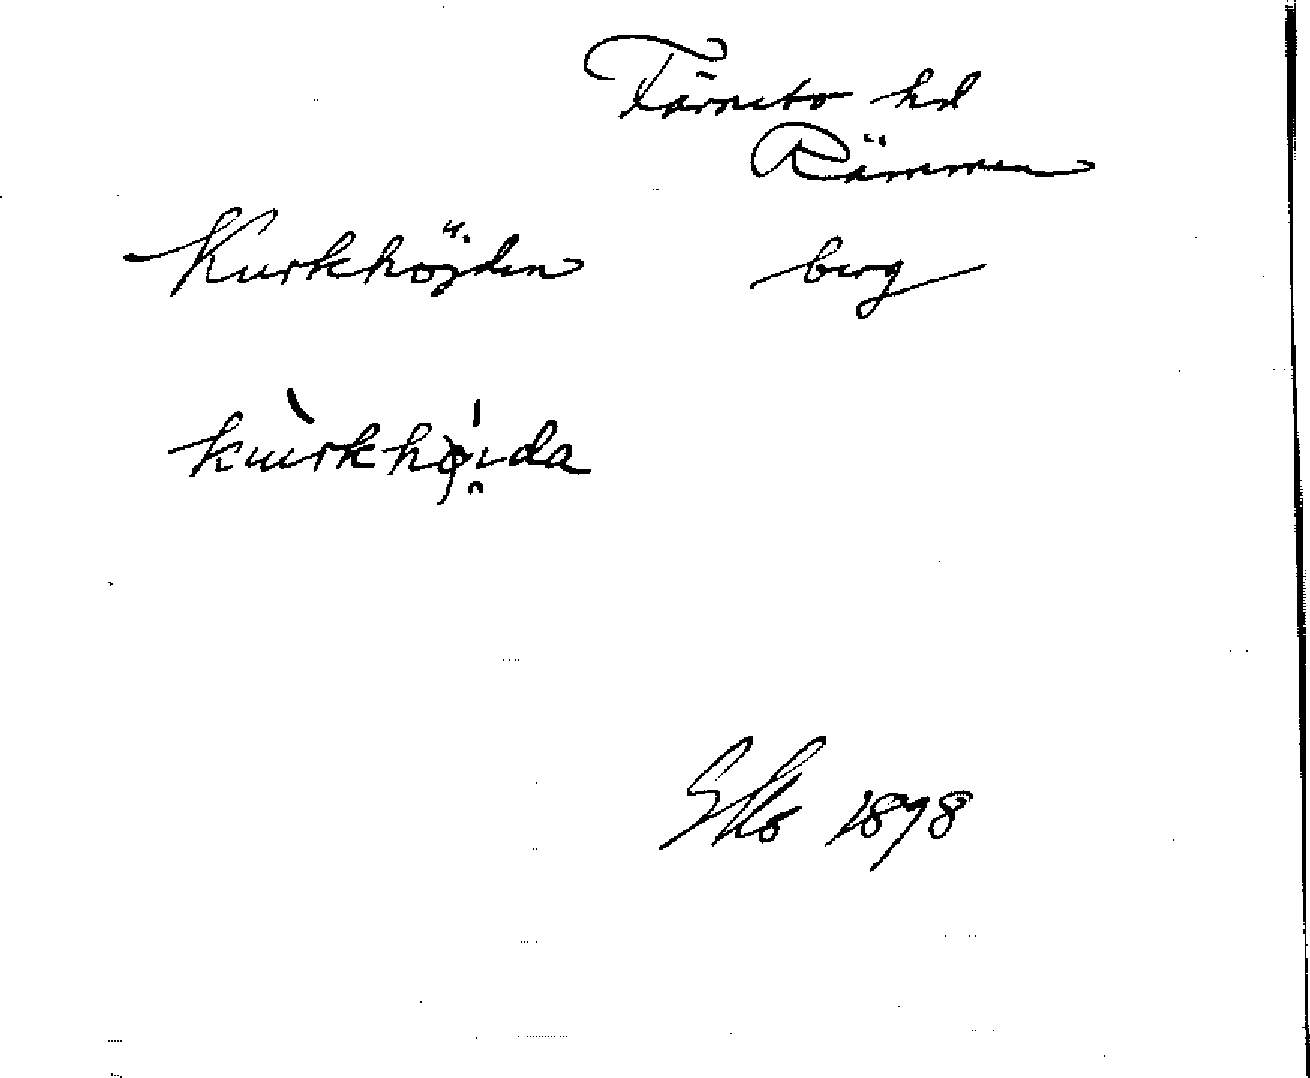 Färnebo hd
Rämmen
Kurkhöjden berg
kurkhøi̯da
Sko 1898